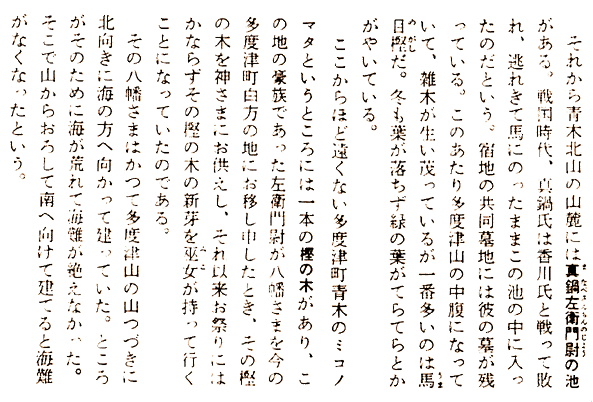 それから青木北山の山麓には真鍋左衛門尉の池
がある。戦国時代、真鍋氏は香川氏と戦って敗
れ、逃れきて馬にのったままこの池の中に入っ
たのだという。宿地の共同墓地には彼の墓が残
っている。このあたり多度津山の中腹になって
いて、雑木が生い茂っているが一番多いのは馬
目樫だ。冬も葉が落ちず緑の葉がてらてらとか
がやいている。
ここからほど遠くない多度津町青木のミコノ
マタというところには一本の樫の木があり、こ
の地の豪族であった左衛門尉が八幡さまを今の
多度津町白方の地にお移し申したとき、その樫
の木を神さまにお供えし、それ以来お祭りには
かならずその樫の木の新芽を巫女が持って行く
ことになっていたのである。
その八幡さまはかつて多度津山の山つづきに
北向きに海の方へ向かって建っていた。ところ
がそのために海が荒れて海難が絶えなかった。
そこで山からおろして南へ向けて建てると海難
がなくなったという。